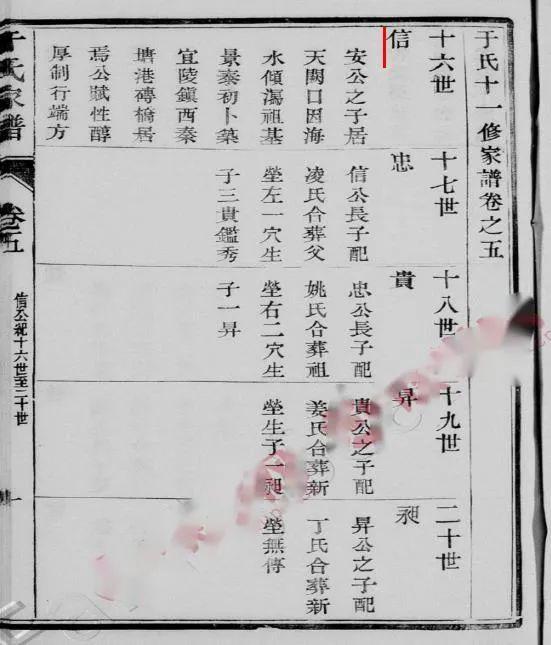 于氏十一修家譜卷之五
十六世
十七世
十八世
十九世
二十世
信
忠
貴
昇
昶
安公之子居
天闕口因海
水傾瀉祖基
景泰初卜築
宜陵鎮西秦
塘港磚橋居
焉公賦性醇
厚制行端方
信公長子配
凌氏合葬父
塋左一穴生
子三貴鑑秀
忠公長子配
姚氏合葬祖
塋右二穴生
子一昇
貴公之子配
姜氏合葬新
塋生子一昶
昇公之子配
丁氏合葬新
塋無傳
于氏家譜
卷之五
信公起十六世至二十世
一